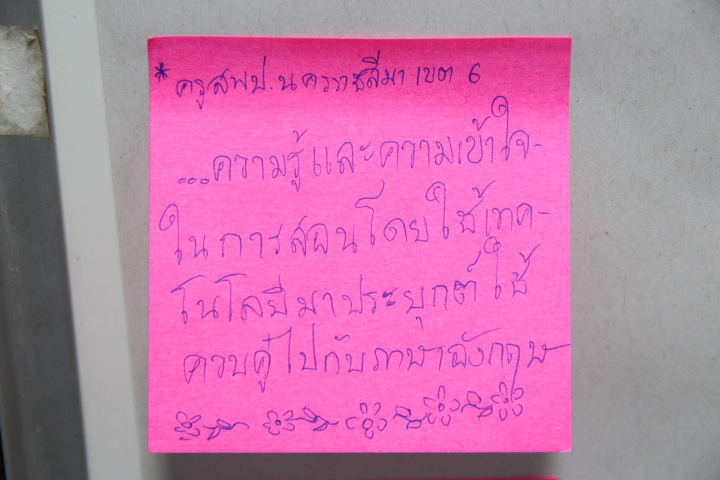 * ครูสพป.นครราชสีมา เขต 6
...ความรู้และความเข้าใจ-
ในการสอนโดยใช้เทค-
โนโลยีมาประยุกต์ใช้
ควบคู่ไปกับภาษาอังกฤษ